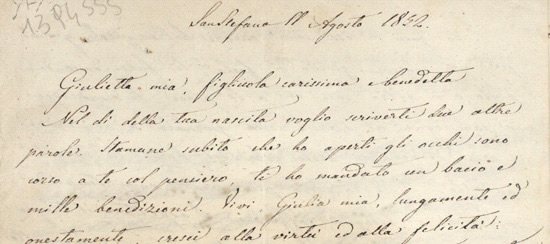 1384555
San Stefano 11 Agosto 1852.
Giulietta mia, figliuola carissima e benedetta
Nel dì della tua nascita voglio scriverti due altre
parole. Stamane subito che ho aperti gli occhi sono
corso a te col pensiero, ti ho mandato un bacio e
mille benedizioni. Vivi, Giulia mia, lungamente ed
onestamente, cresci alla virtù ed alla felicità: